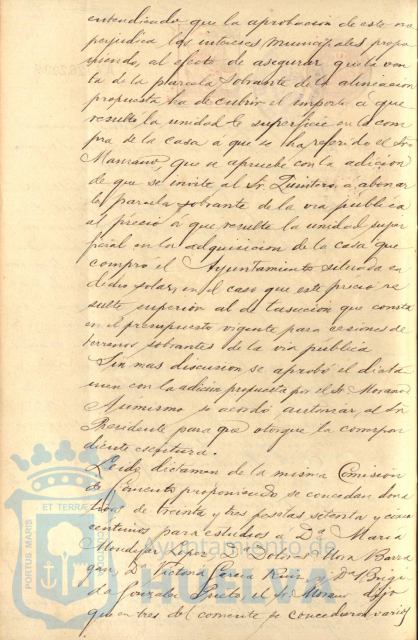 entendiendo que la aprobación de este no
perjudica los intereses municipales propo
niendo, al efecto de asegurar que la ven
ta de la parcela sobrante de la alineacion
propuesta ha de cubrir el importe á que
resulte la unidad de superficie en la com
pra de la casa a que se ha referido el Sr.
Manzano, que se apruebe con la adicion
de que se invite al Sr. Quintero, á abonar
la parcela sobrante de la via publica
al precio á que resulte la unidad super
ficial en la adquisicion de la casa que
compró el Ayuntamiento situada en
dicho solar, en el caso que este precio re
sulte superior al de tasacion que consta
en el presupuesto vigente para cesiones de
terrenos sobrantes de la via pública
Sin mas discusion se aprobó el dicta
men con la adicion propuesta por el Sr. Morano
Asimismo se acordó autorizar al Sr
Presidente para que otorgue la correspon
diente escritura.
Leido dictamen de la misma Comision
de Fomento proponiendo se concedan dona
tivos de treinta y tres pesetas setenta y cinco
centimos para estudios á Dª Maria
Mondejar Lopez, Dª Dolores Mora Barra
gan, Dª Victoria Garcia Ruiz, y Dª Brigi
da Gonzalez Prieto, el Sr. Morano dijo
que en tres del corriente se concedieron varios
PORTUS MARIS
ET TERRAE
Ayuntamiento de
HUELVA